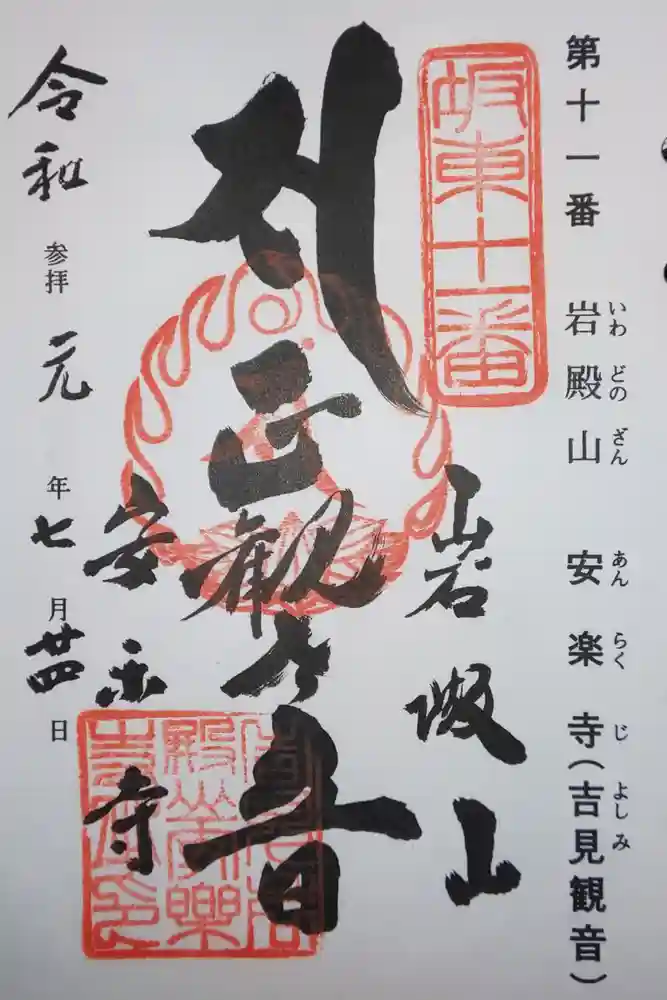 第十一番 岩殿山 安楽寺(吉見観音)
いわ どの ざん あん らく じ よしみ
坂東十一番
岩殿山
正観世音
安楽寺
令和 参拝 元 年 七 月 廿四 日